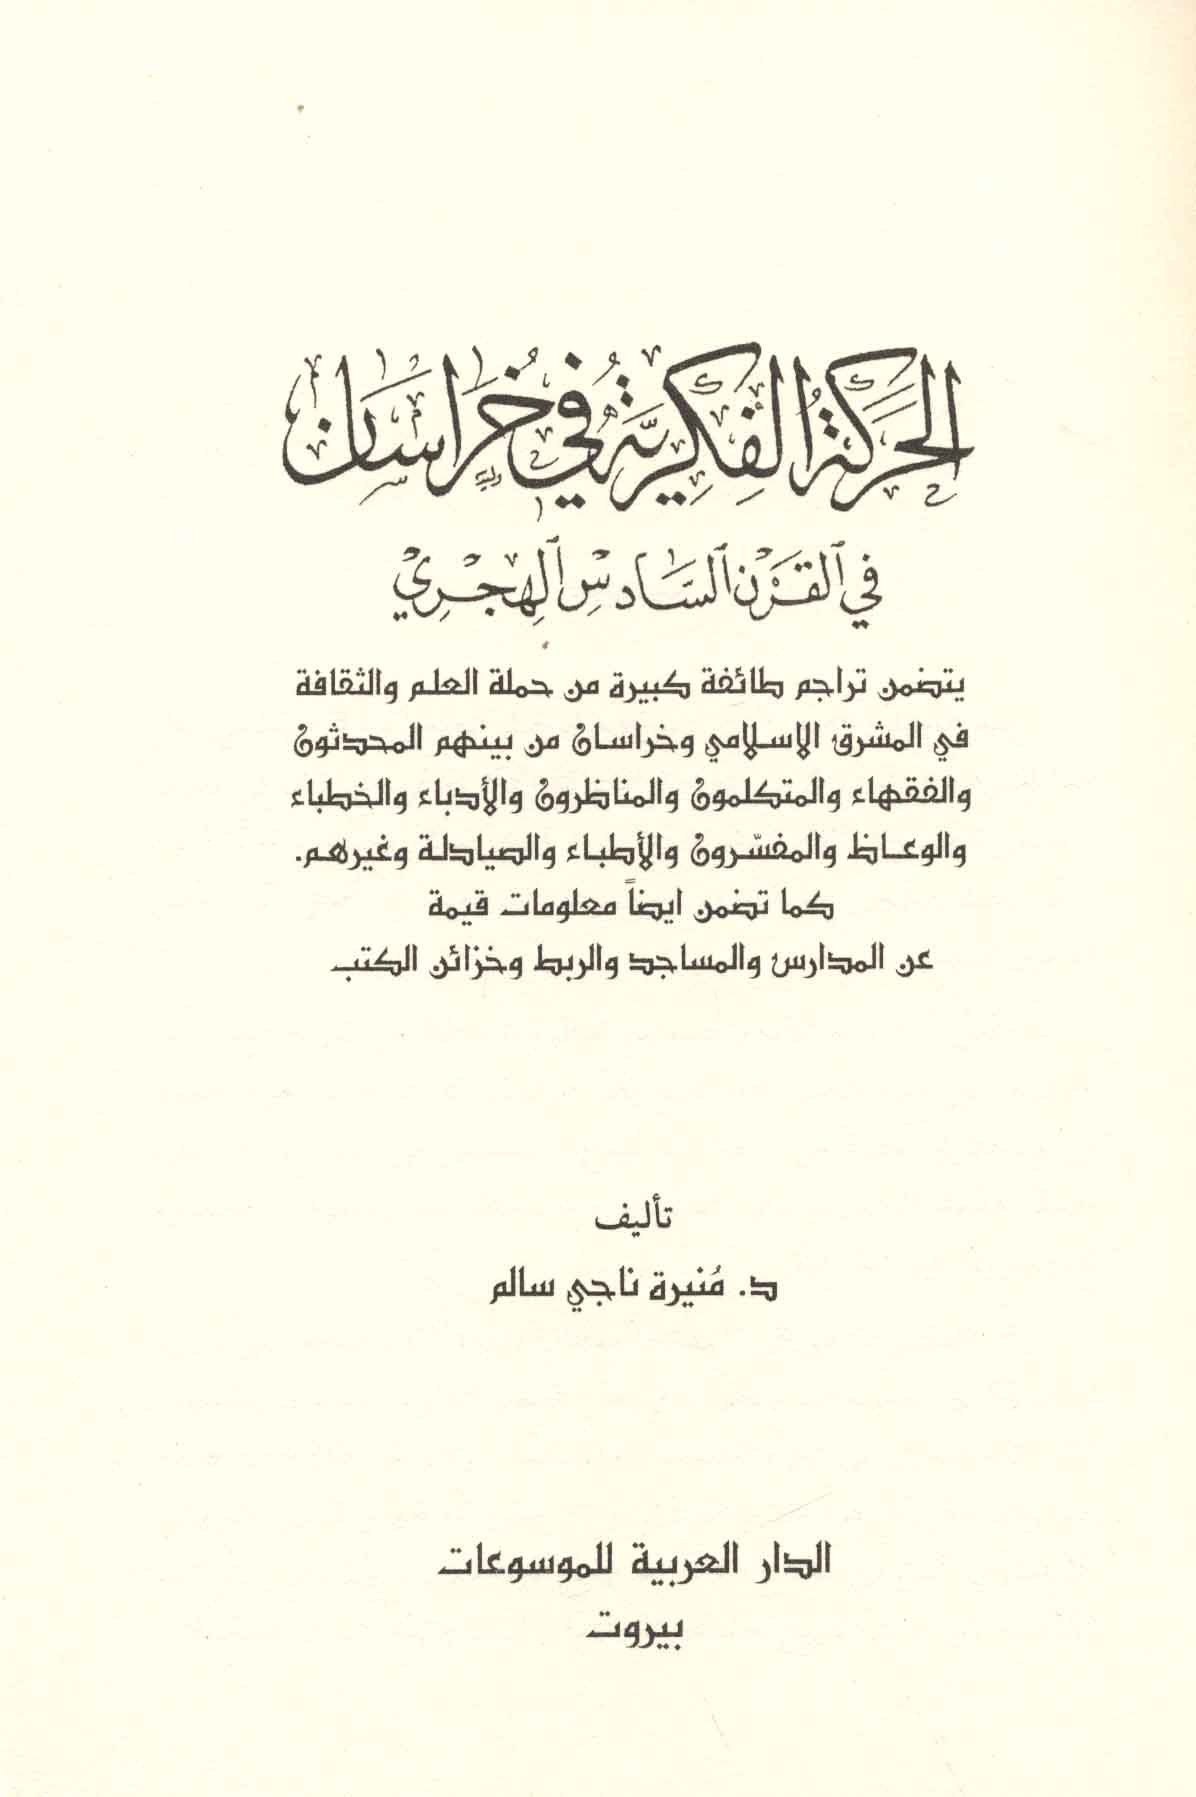 الحَرَكَةُ الفِكْرِيَّةُ فِي خُرَاسَان
في القَرْنِ السَّادسِ الهِجْرِي
يتضمن تراجم طائفة كبيرة من حملة العلم والثقافة
في المشرق الإسلامي وخراسان من بينهم المحدثون
والفقهاء والمتكلمون والمناظرون والأدباء والخطباء
والوعـاظ والمفسّرون والأطباء والصيادلة وغيرهم.
كما تضمن ايضاً معلومات قيمة
عن المدارس والمساجد والربط وخزائن الكتب
تأليف
د. مُنيرة ناجي سالم
الدار العربية للموسوعات
بيروت